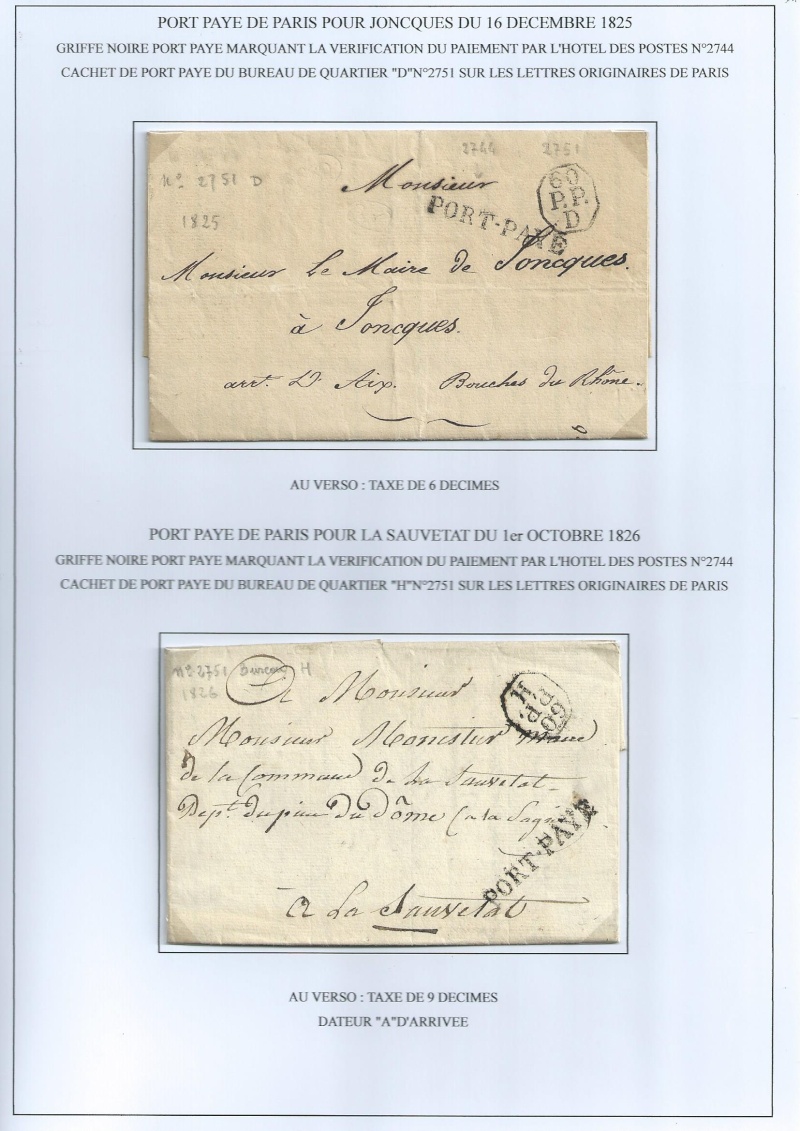 PORT PAYE DE PARIS POUR JONCQUES DU 16 DECEMBRE 1825
GRIFFE NOIRE PORT PAYE MARQUANT LA VERIFICATION DU PAIEMENT PAR L'HOTEL DES POSTES N°2744
CACHET DE PORT PAYE DU BUREAU DE QUARTIER "D"N°2751 SUR LES LETTRES ORIGINAIRES DE PARIS
2744 2751
N° 2751 D
1825
Monsieur
60
P.P.
D
PORT-PAYÉ
Monsieur Le Maire de Joncques.
à Joncques.
arrt. D' Aix. Bouches du Rhône.
AU VERSO : TAXE DE 6 DECIMES
PORT PAYE DE PARIS POUR LA SAUVETAT DU 1er OCTOBRE 1826
GRIFFE NOIRE PORT PAYE MARQUANT LA VERIFICATION DU PAIEMENT PAR L'HOTEL DES POSTES N°2744
CACHET DE PORT PAYE DU BUREAU DE QUARTIER "H"N°2751 SUR LES LETTRES ORIGINAIRES DE PARIS
n° 2751 Bureau H
1826
A Monsieur
60
P.P.
H
Monsieur Maire
de la Commune de La Sauvetat
Dept. du puiu Du Dôme (a la
PORT-PAYÉ
a La Sauvetat
AU VERSO : TAXE DE 9 DECIMES
DATEUR "A"D'ARRIVEE